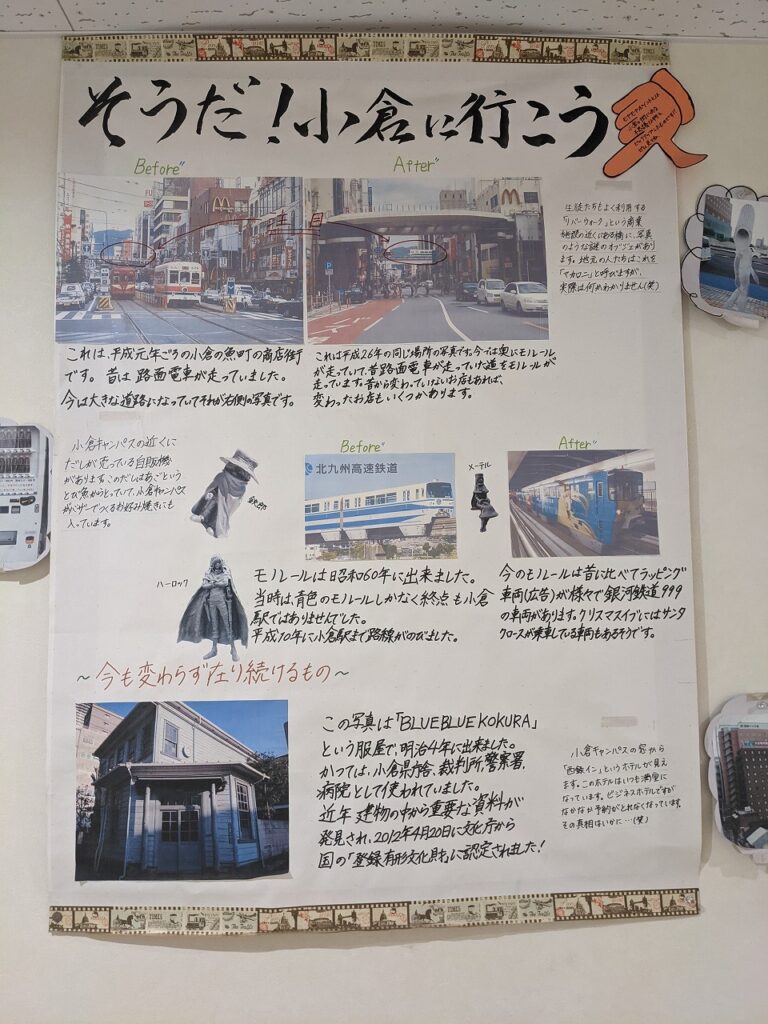 そうだ!小倉に行こう
Before
After
注目
これは、平成元年ごろの小倉の魚町の商店街
です。昔は路面電車が走っていました。
今は大きな道路になっていてそれが右側の写真です。
これは平成26年の同じ場所の写真です。今では奥にモノレール
が走っていて、昔路面電車が走っていた道をモノレールが
走っています。昔から変わっていないお店もあれば、
変わったお店もいくつかあります。
生徒たちもよく利用する
「リバーウォーク」という商業
施設の近くにある橋に、写真
のような謎のオブジェがあり
ます。地元の人たちはこれを
「マカロニ」と呼びますが、
実際は何かわかりません(笑)
小倉キャンパスの近くに
だしが売っている自販機
があります。このだしはあごという
とび魚からとっていて、小倉キャンパス
がバザーでつくるお好み焼きにも
入っています。
鉄郎
ハーロック
Before
北九州高速鉄道
メーテル
After
モノレールは昭和60年に出来ました。
当時は、青色のモノレールしかなく終点も小倉
駅ではありませんでした。
平成10年に小倉駅まで路線がのびました。
今のモノレールは昔に比べてラッピング
車両(広告)が様々で銀河鉄道999
の車両があります。クリスマスイブにはサンタ
クロースが乗車している車両もあるそうです。
~今も変わらず在り続けるもの~
この写真は「BLUEBLUEKOKURA」
という服屋で、明治4年に出来ました。
かつては、小倉県庁舎、裁判所、警察署、
病院として使われていました。
近年 建物の中から重要な資料が
発見され、2012年4月20日に文化庁から
国の「登録有形文化財」に認定されました!
小倉キャンパスの窓から
「西鉄イン」というホテルが見え
ます。このホテルはいつも満室に
なっています。ビジネスホテルですが
なかなか予約がとれなくなっています。
その真相はいかに…(笑)